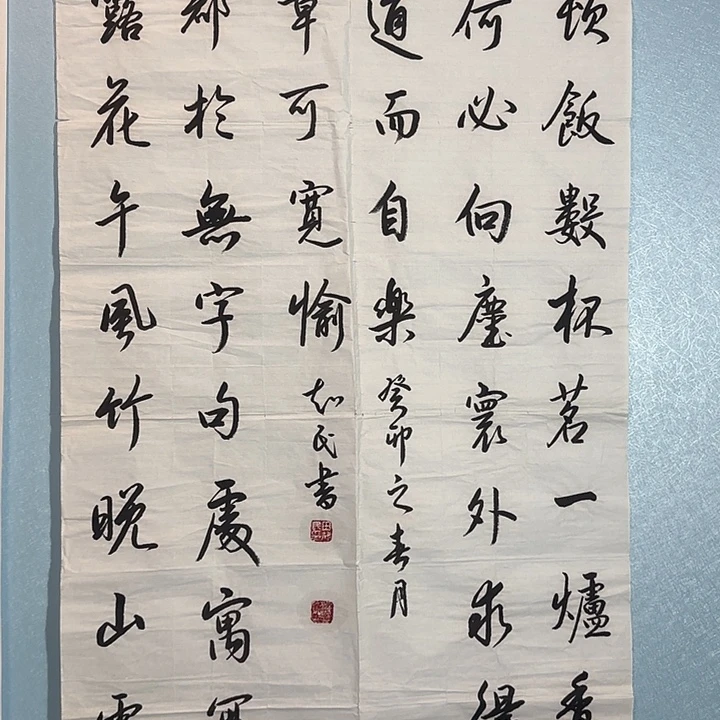 飯數杯茗一爐香
何必向塵寰外求得
道而自樂 癸卯之春月
章可寬愉 知民書
都於無字句處寓寫
露花午風竹晚山雲